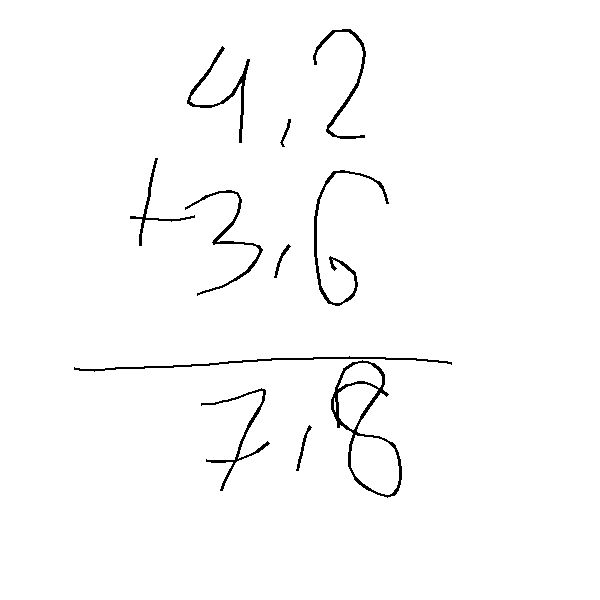 4,2
+3,6
7,8